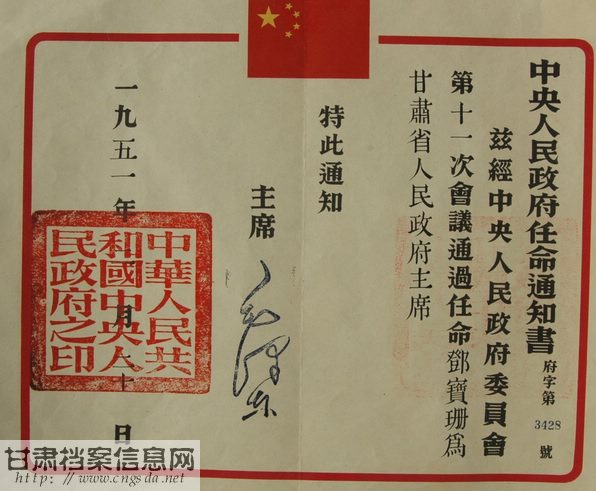 中央人民政府任命通知書
府字第3428號
兹經中央人民政府委員會
第十一次會議通過任命鄧寶珊爲
甘肅省人民政府主席
特此通知
主席
毛澤东
一九五一年 月二十 日
中華人民共
和國中央人
民政府之印
甘肃档案信息网
www.cngsda.net